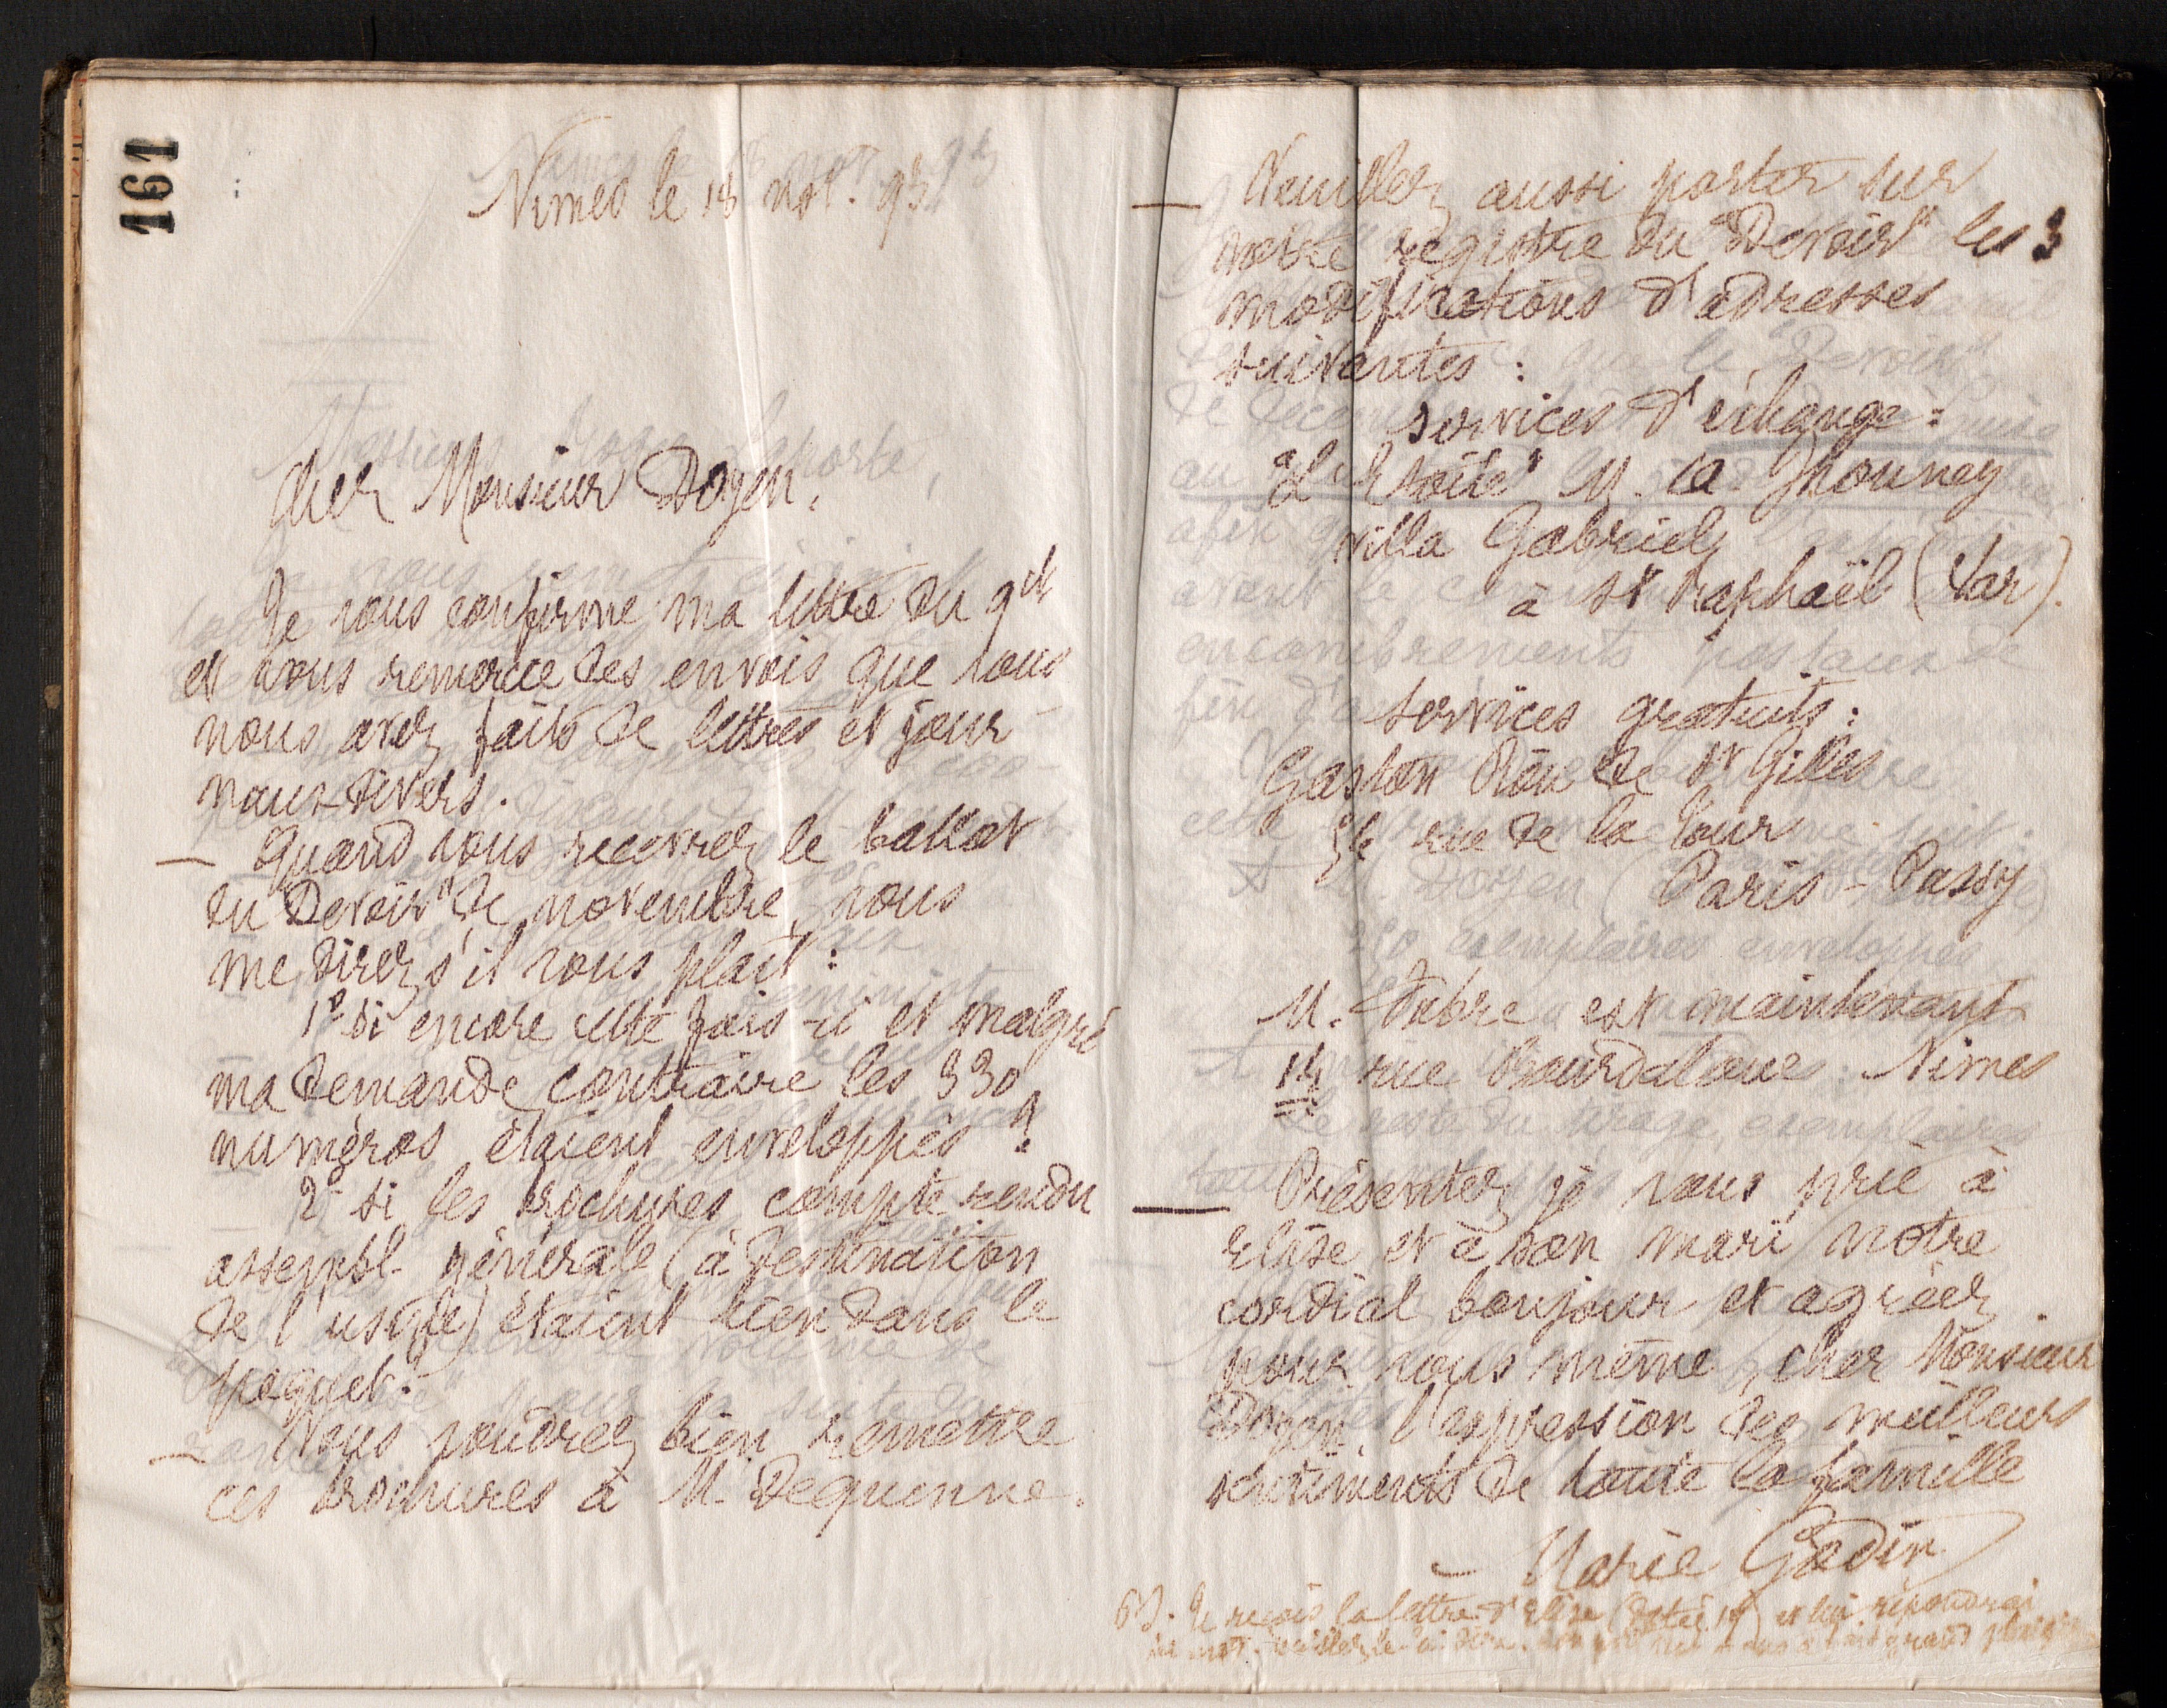 161
Nimes le 18 nov. 93
Cher Monsieur Doyen,
Je vous confirme ma lettre du 9 ct
et vous remercie des envois que vous
nous avez faits de lettres et jour-
naux divers.
— Quand vous recevrez le ballot
du "Devoir" de novembre, vous
me direz s'il vous plaît :
1° si encore cette fois-ci et malgré
ma demande contraire les 330
numéros étaient enveloppés ?
2° si les brochures compte-rendu
assembl. générale (à destination
de l'usine) étaient bien dans le
paquet.
— Vous voudrez bien remettre
ces brochures à M. Dequenne.
— Veuillez aussi porter sur
notre registre du "Devoir" les 3
modifications d'adresses
suivantes :
services d'échange :
"L'Etoile" M. A. Jhouney
villa Gabriel
à St Raphaël (Var).
services gratuits :
Gaston Piou de St Gilles
rue de la Tour
Paris-Passy
M. Fabre est maintenant
14 rue Bourdaloue Nimes
— Présentez je vous prie à
Elise et à son mari notre
cordial bonjour et agréez
pour vous même, cher Monsieur
Doyen, l'expression des meilleurs
sentiments de toute la famille
Marie Godin
P.S. Je reçois la lettre d'Elise (datée 17) et lui répondrai
grand plaisir